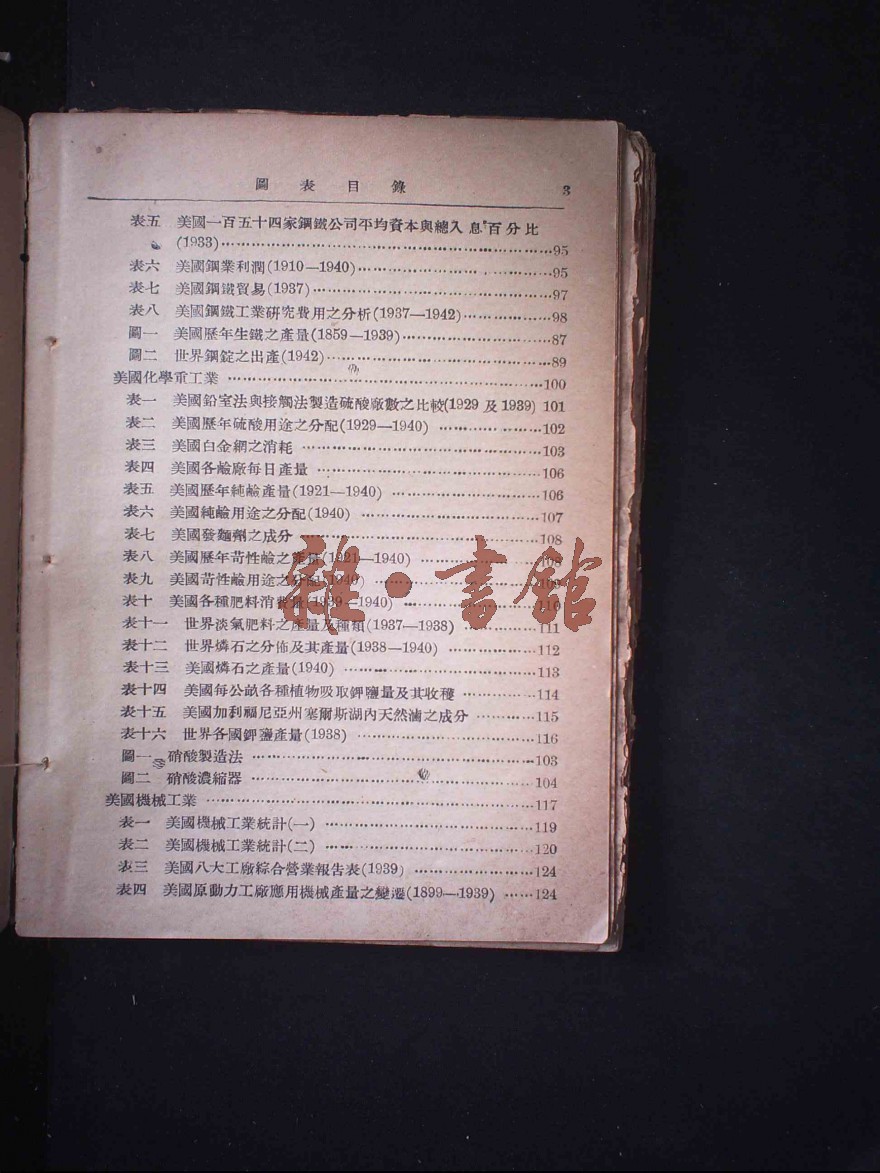 圖表目錄 3
表五 美國一百五十四家鋼鐵公司平均資本與總入息百分比
(1933)……95
表六 美國鋼業利潤(1910—1940)……95
表七 美國鋼鐵貿易(1937)……97
表八 美國鋼鐵工業硏究費用之分析(1937—1942)……98
圖一 美國歷年生鐵之產量(1859—1939)……87
圖二 世界鋼錠之出產(1942)……89
美國化學重工業……100
表一 美國鉛室法與接觸法製造硫酸廠數之比較(1929及1939) 101
表二 美國歷年硫酸用途之分配(1929—1940)……102
表三 美國白金網之消耗……103
表四 美國各鹼廠每日產量……106
表五 美國歷年純鹼產量(1921—1940)……106
表六 美國純鹼用途之分配(1940)……107
表七 美國發麵劑之成分……108
表八 美國歷年苛性鹼之產量(1921—1940)……108
表九 美國苛性鹼用途之分配(1940)……109
表十 美國各種肥料消費量(1939—1940)……110
表十一 世界淡氣肥料之產量及種類(1937—1938)……111
表十二 世界燐石之分佈及其產量(1938—1940)……112
表十三 美國燐石之產量(1940)……113
表十四 美國每公畝各種植物吸取鉀鹽量及其收穫……114
表十五 美國加利福尼亞州塞爾斯湖內天然滷之成分……115
表十六 世界各國鉀鹽產量(1938)……116
圖一 硝酸製造法……103
圖二 硝酸濃縮器……104
美國機械工業……117
表一 美國機械工業統計(一)……119
表二 美國機械工業統計(二)……120
表三 美國八大工廠綜合營業報告表(1939)……124
表四 美國原動力工廠應用機械產量之變遷(1899—1939)……124
雜·書館